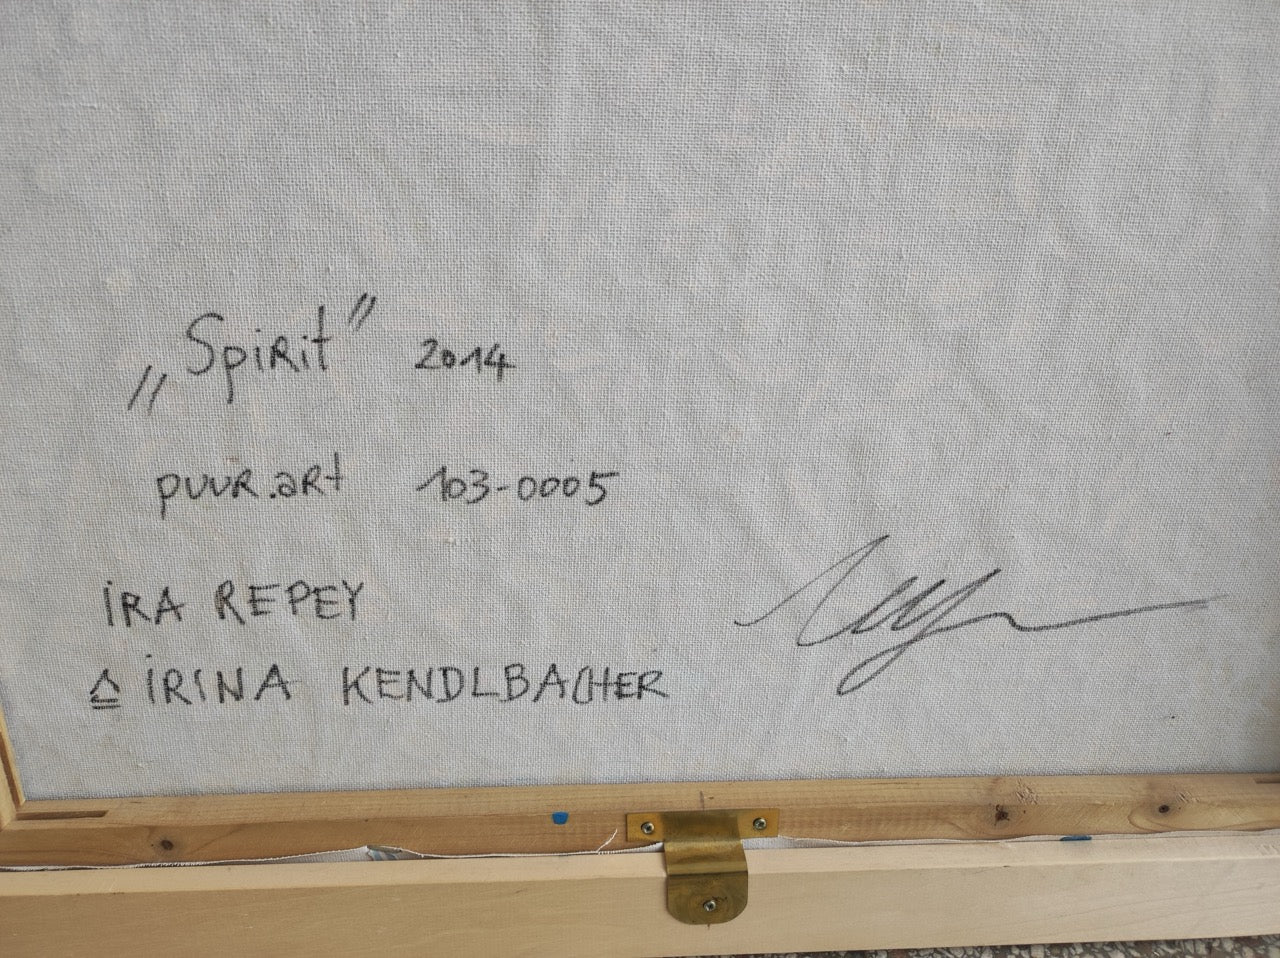 „Spirit” 2014
puur.art 103-0005
IRA REPEY
≙ IRINA KENDLBACHER